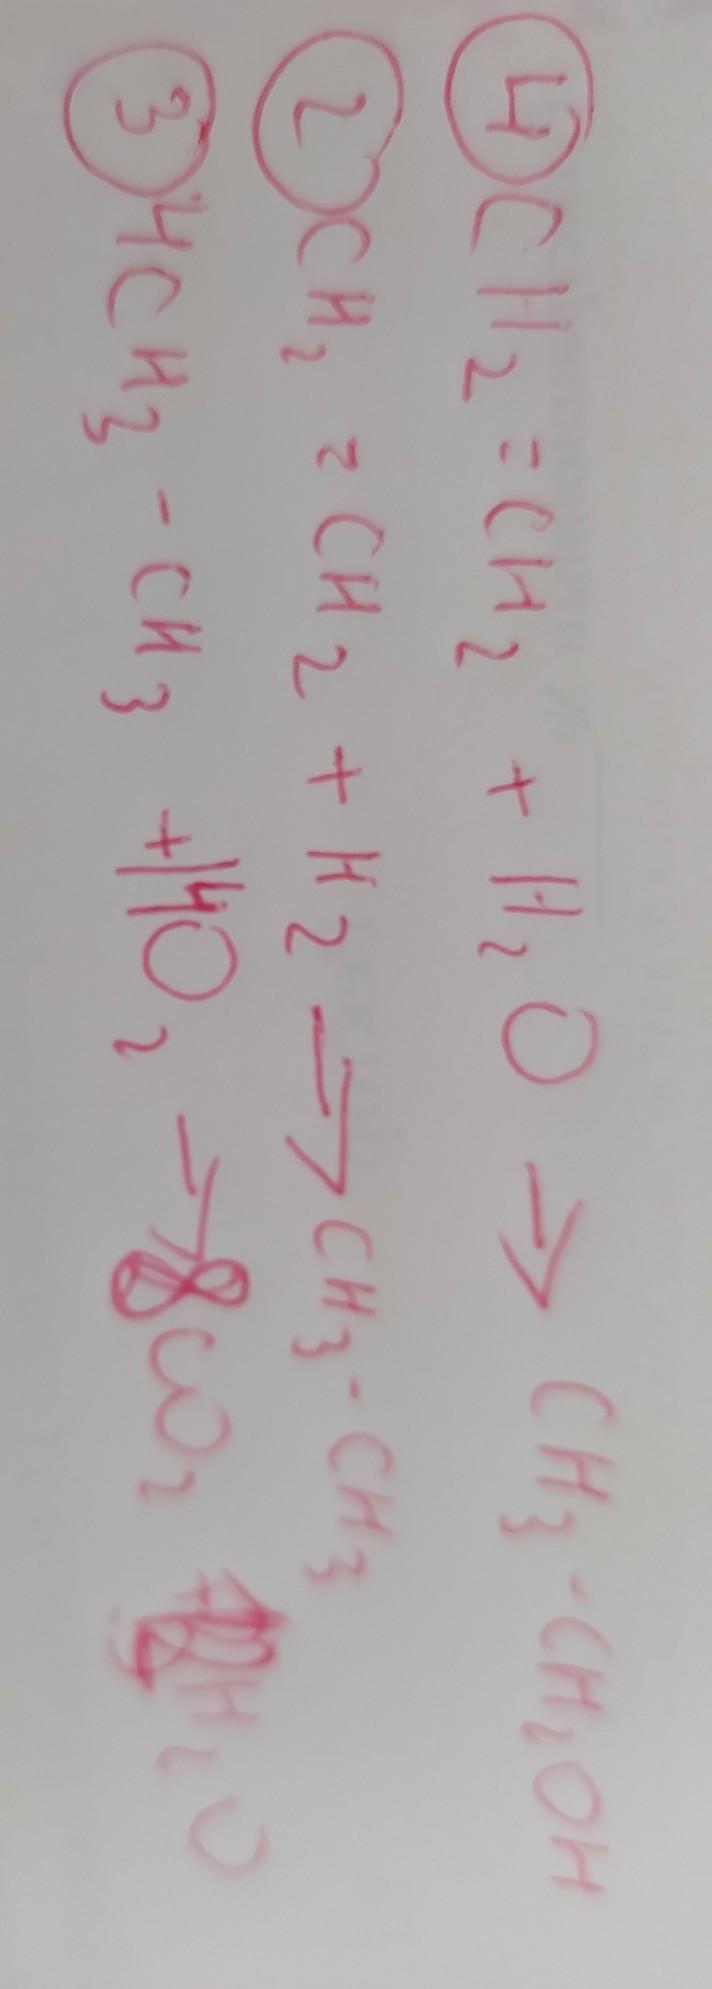 4 CH2 = CH2 + H2O → CH3 - CH2OH
2 CH2 = CH2 + H2 → CH3 - CH3
3 4CH3 - CH3 + 14O2 → 8CO2 H2O